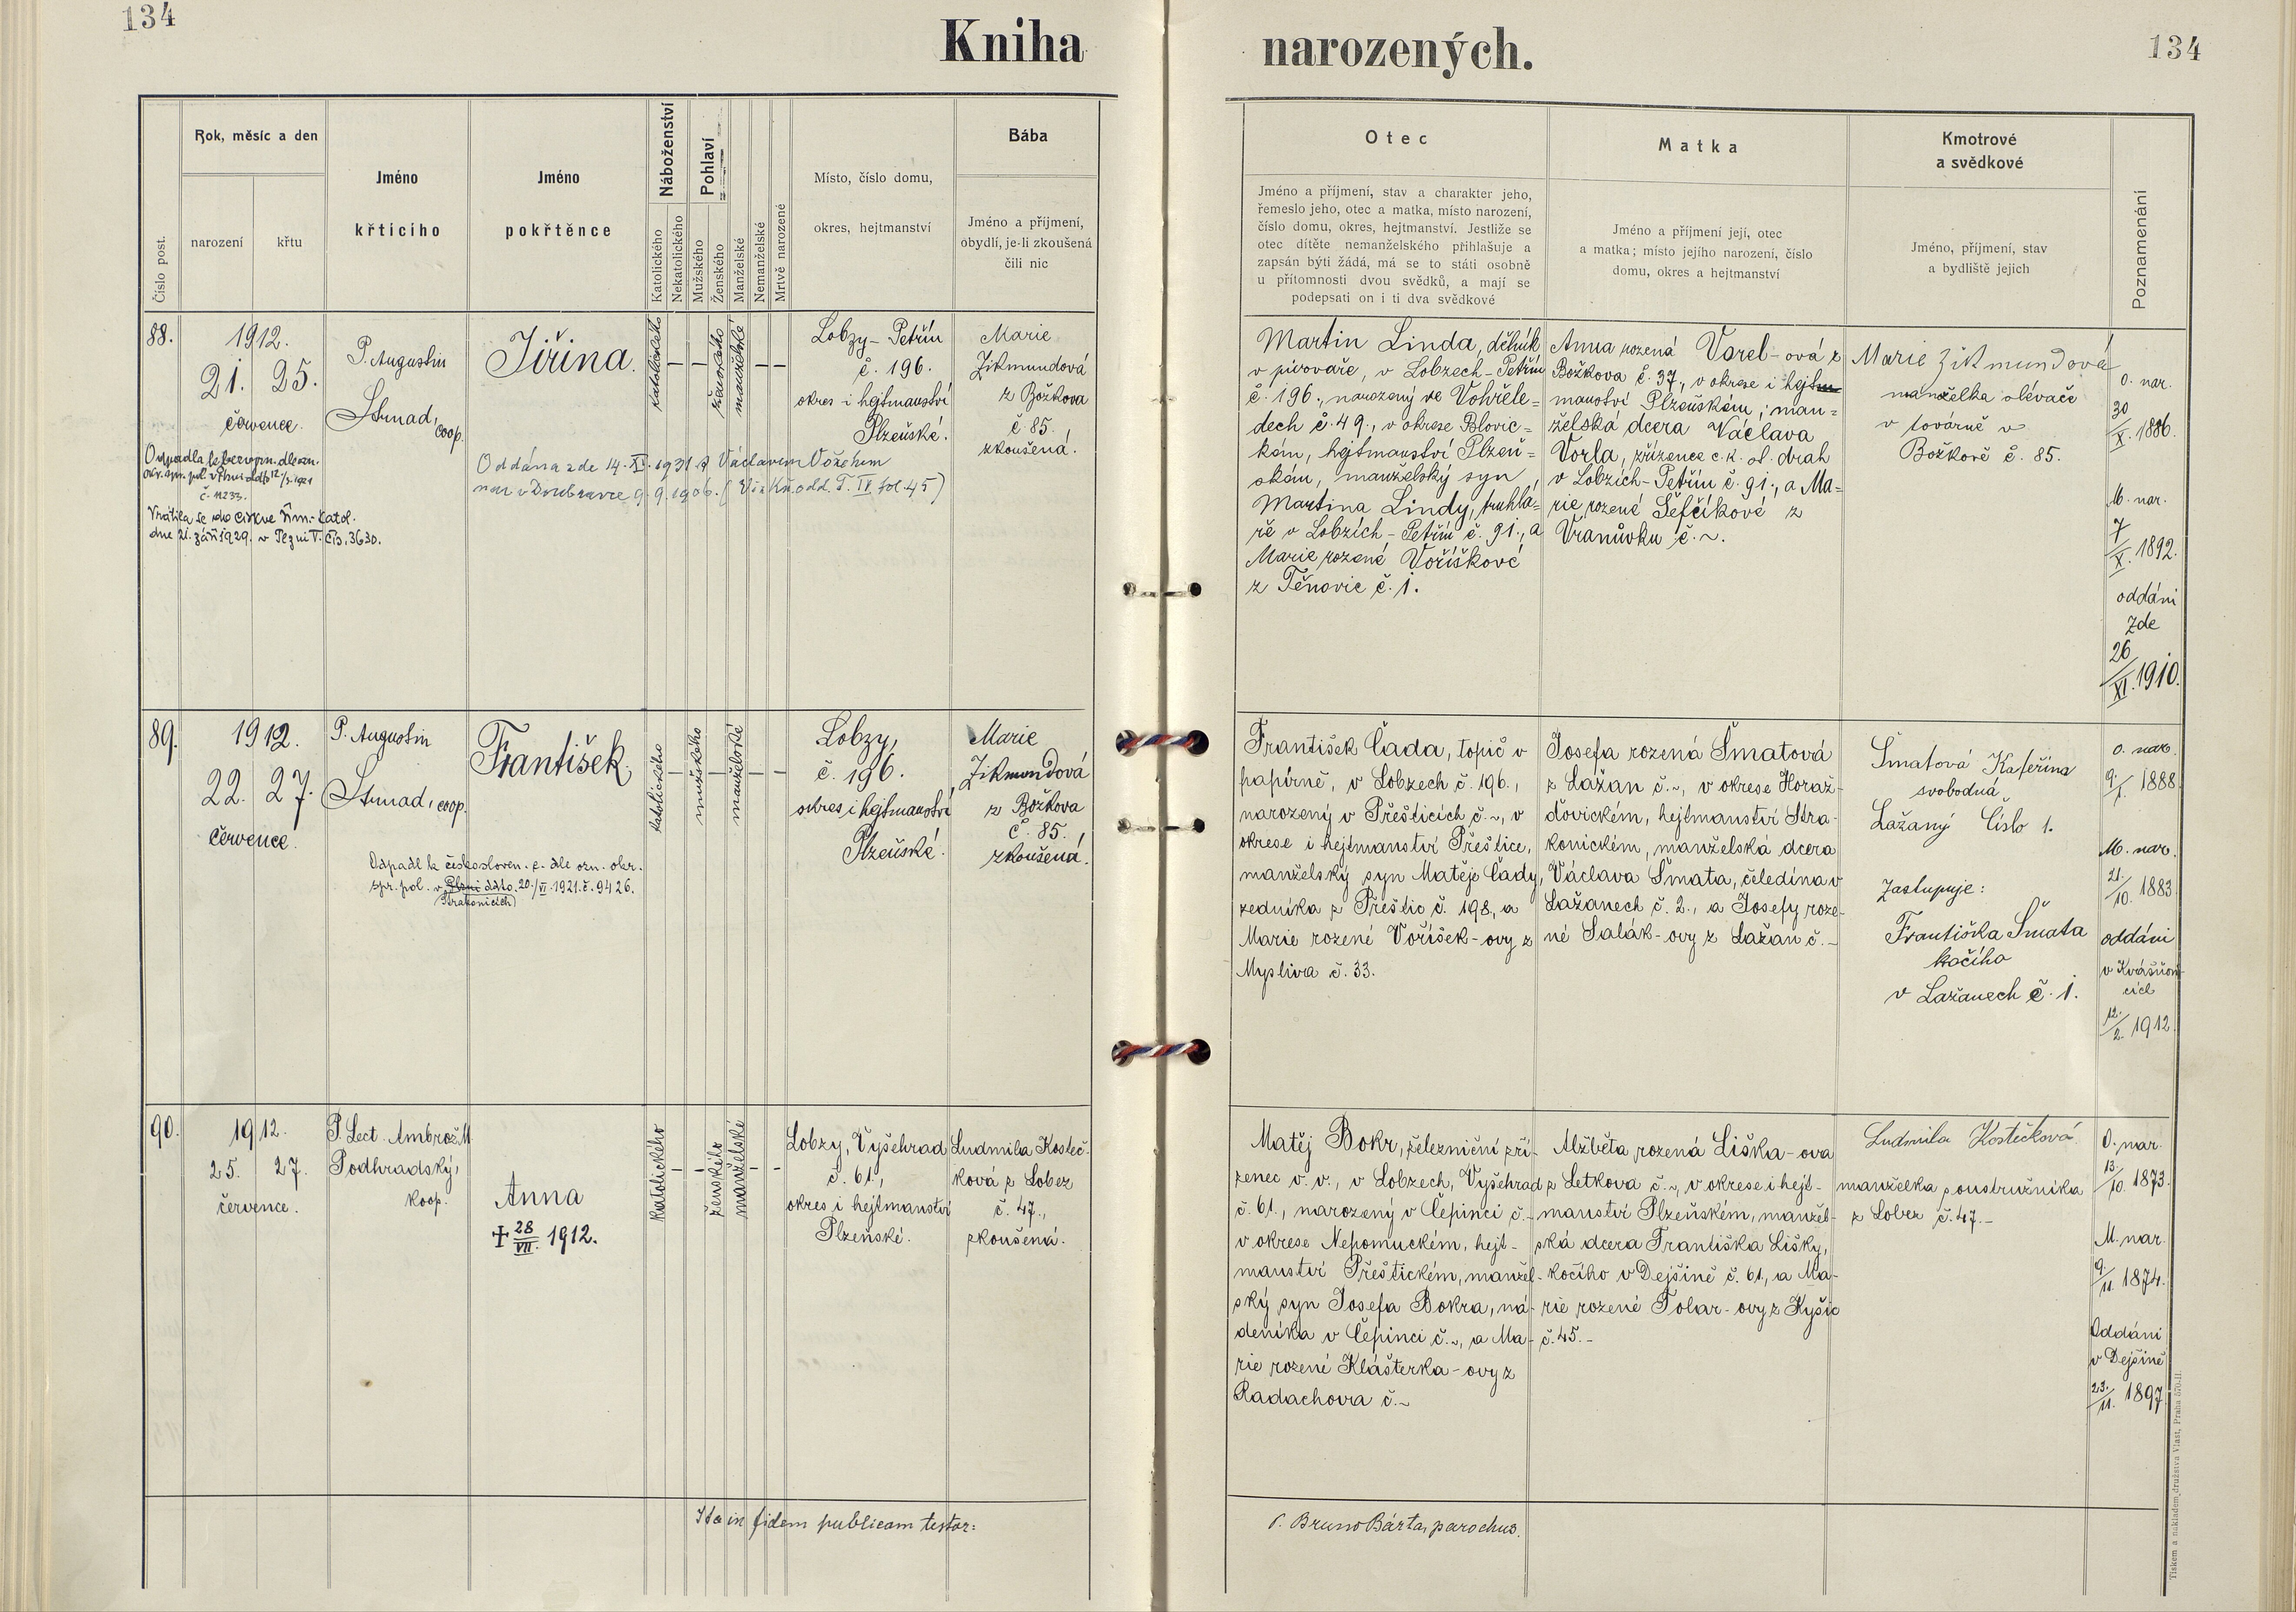 134
Kniha
narozených.
134
Číslo post.
Rok, měsíc a den
narození
křtu
Jméno
křticího
Jméno
pokřtěnce
Náboženství
Katolického
Nekatolického
Pohlaví
Mužského
Ženského
Manželské
Nemanželské
Mrtvě narozené
Místo, číslo domu,
okres, hejtmanství
Bába
Jméno a příjmení,
obydlí, je-li zkoušená
čili nic
Otec
Jméno a příjmení, stav a charakter jeho,
řemeslo jeho, otec a matka, místo narození,
číslo domu, okres, hejtmanství. Jestliže se
otec dítěte nemanželského přihlašuje a
zapsán býti žádá, má se to státi osobně
u přítomnosti dvou svědků, a mají se
podepsati on i ti dva svědkové
Matka
Jméno a příjmení její, otec
a matka; místo jejího narození, číslo
domu, okres a hejtmanství
Kmotrové
a svědkové
Jméno, příjmení, stav
a bydliště jejich
Poznamenání
88.
1912.
21. 25.
července.
P. Augustin
Strnad,
coop.
Jiřina.
katolického
— —
ženského
manželské
— —
Lobzy - Petřín
č. 196.
okres i hejtmanství
Plzeňské.
Marie
Zikmundová
z Božkova
č. 85.
zkoušená.
č. 11233.
Vrátila se do církve řím.-katol.
dne 21. září 1929. v Plzni V. čís. 3630.
Oddána zde 14. XI. 1931 s Václavem Vóžehem
nar. v Doubravce 9. 9. 1906. (Viz Kn. odd. T. IV. fol. 45)
Martin Linda, dělník
v pivováře, v Lobzech - Petříně
č. 196., narozený ve Vohřele=
dech č. 49., v okrese Blovic=
kém, hejtmanství Plzeň=
ském, manželský syn
Martina Lindy, truhlá=
ře v Lobzích - Petříně č. 91., a
Marie rozené Voříškové
z Těnovic č. 1.
Anna rozená Vorel - ová z
Božkova č. 37., v okrese i hejt
manství Plzeňském; man=
želská dcera Václava
Vorla, zřízence c. k. st. drah
v Lobzích - Petříně č. 91., a Ma=
rie rozené Šefčíkové z
Vranůvku č. ~.
Marie Zikmundová
manželka slévače
v továrně v
Božkově č. 85.
O. nar.
30/X. 1886.
M. nar.
7/X. 1892.
oddáni
zde
26/XI. 1910.
89.
1912.
22. 27.
července.
P. Augustin
Strnad, coop.
František.
katolického
—
mužského
—
manželské
— —
Lobzy,
č. 196.
okres i hejtmanství
Plzeňské.
Marie
Zikmundová
z Božkova
č. 85.
zkoušená.
Odpadl k českosloven. c. dle ozn. okr.
spr. pol. v Plzni ddto. 20./VI. 1921. č. 9426.
(Strakonicích)
František Čada, topič v
papírně, v Lobzech č. 196.,
narozený v Přešticích č. ~, v
okrese i hejtmanství Přeštice,
manželský syn Matěje Čady,
zedníka z Přeštic č. 198, a
Marie rozené Voříšek - ovy z
Mysliva č. 33.
Josefa rozená Šmatová
z Lažan č. ~, v okrese Horaž-
ďovickém, hejtmanství Stra-
konickém, manželská dcera
Václava Šmata, čeledína v
Lažanech č. 2., a Josefy roze-
né Salák - ovy z Lažan č. -
Šmatová Kateřina
svobodná,
Lažany číslo 1.
Zastupuje:
Františka Šmata
kočího
v Lažanech č. 1.
O. nar.
9./1. 1888.
M. nar.
21./10. 1883.
oddáni
v Kvášňovi
cích
12./2. 1912.
90.
1912.
25. 27.
července.
P. Lect. Ambrož M.
Podhradský,
koop.
Anna
+ 28/VII. 1912.
katolického
- -
ženského
manželské
- -
Lobzy, Vyšehrad
č. 61.,
okres i hejtmanství
Plzeňské.
Ludmila Kosteč-
ková z Lobez
č. 47.,
zkoušená.
Matěj Bokr, železniční zří-
zenec v. v., v Lobzech, Vyšehrad
č. 61., narozený v Čepinci č. -
v okrese Nepomuckém, hejt-
manství Přeštickém, manžel-
ský syn Josefa Bokra, ná-
deníka v Čepinci č. ~, a Ma-
rie rozené Klášterka - ovy z
Radachova č. ~
Alžběta rozená Liška - ova
z Letkova č. ~, v okrese i hejt-
manství Plzeňském, manžel-
ská dcera Františka Lišky,
kočího v Dejšině č. 61., a Ma-
rie rozené Tolar - ovy z Kyšic
č. 45. -
Ludmila Kostečková
manželka soustružníka
z Lobez č. 47. -
O. nar.
13./10. 1873.
M. nar.
9./11. 1874.
Oddáni
v Dejšině
23./11. 1897.
Ita in fidem publicam testor:
P. Bruno Bárta, parochus.
Tiskem a nákladem družstva Vlast, Praha 570-II.